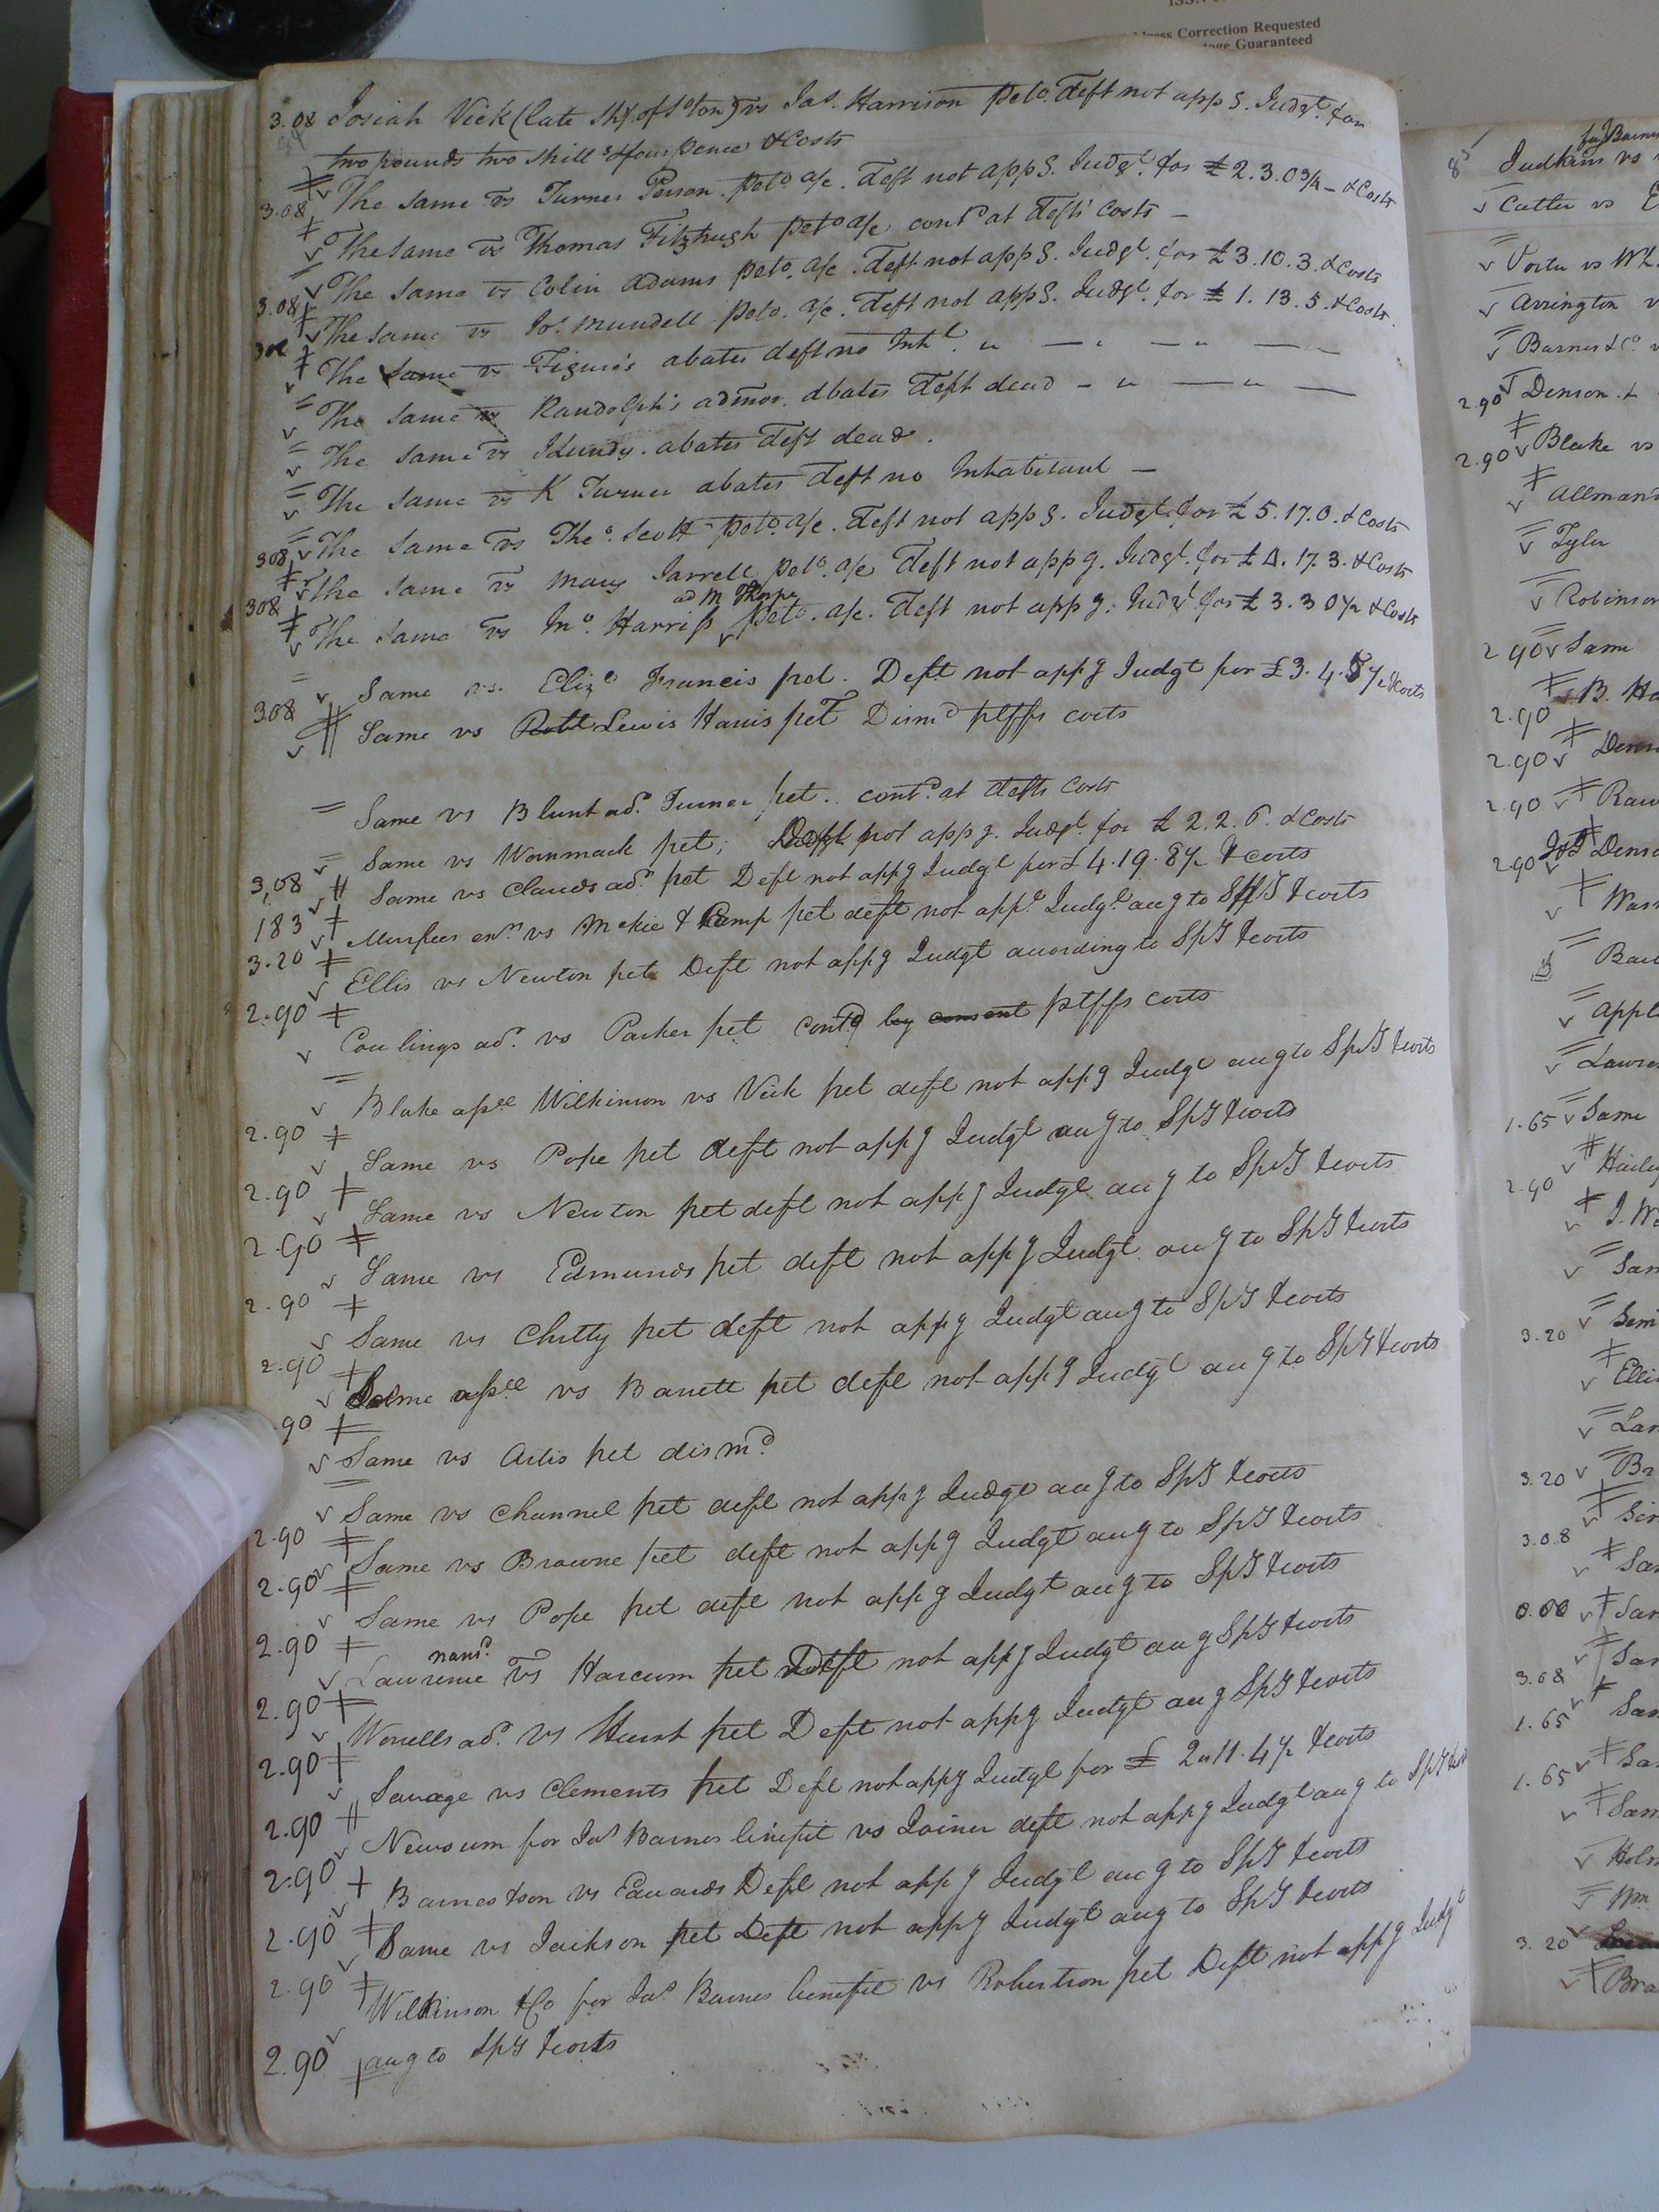 ress Correction Requested
age Guaranteed
3.08 Josiah Vick (late Shf of S'ton) vs Jas. Harrison peto. deft not appg. Judgt. for
two pounds two shills & four pence & Costs
3.08 The Same vs Turner Person. peto a/c. deft not appg. Judgt. for £2.3.0¾ - & Costs
The Same vs Thomas Fitzhugh peto a/c contd at defts Costs -
The Same vs Colin Adams peto. a/c. deft not appg. Judgt. for £3.10.3. & Costs
3.08 The Same vs Jos. Mundell. peto. a/c. deft not appg. Judgt. for £1.13.5. & Costs.
308 The Same vs Figures abates deft no Inht.
The Same vs Randolph's admor. abates deft dead
The Same vs abates deft dead.
The Same vs K Turner abates deft no Inhabitant -
The Same vs Tho. Scott peto a/c. deft not appg. Judgt. for £5.17.0. & Costs
308 The Same vs Mary Jarrell peto. a/c deft not appg. Judgt. for £4.17.3. & Costs
ad M Thorpe
308 The Same vs Jno. Harriss peto. a/c. deft not appg. Judgt. for £3.3.0½ & Costs
Same vs. Eliza Francis pet. Deft not appg Judgt for £3.4.5½ & costs
308 Same vs Robt Lewis Harris pet Dismd ptffs costs
Same vs Blunt ad. Turner pet. contd. at defts Costs
Same vs Wommack pet; Deft not appg. Judgt. for £2.2.6. & Costs
3,08 Same vs Clauds ad. pet Deft not appg Judgt for £4.19.8½ & costs
183 Murfees exrs vs McKie & Camp pet deft not appg Judgt. accg to SpS & costs
3.20 Ellis vs Newton pet Deft not appg Judgt according to SpS & costs
2.90 Coulings ad. vs Parker pet contd by consent ptffs costs
Blake assee Wilkinson vs Vick pet deft not appg Judgt accg to SpS & costs
2.90 Same vs Pope pet deft not appg Judgt accg to SpS & costs
2.90 Same vs Newton pet deft not appg Judgt accg to SpS & costs
2.90 Same vs Edmunds pet deft not appg Judgt accg to SpS & costs
2.90 Same vs Chitty pet deft not appg Judgt accg to SpS & costs
2.90 Same assee vs Barrett pet deft not appg Judgt accg to SpS & costs
90 Same vs Artis pet dismd
Same vs Channel pet deft not appg Judgt accg to SpS & costs
2.90 Same vs Browne pet deft not appg Judgt accg to SpS & costs
2.90 Same vs Pope pet deft not appg Judgt accg to SpS & costs
2.90 Lawrence vs Harcum pet Deft not appg Judgt accg SpS & costs
2.90 Worrells ad. vs Hurst pet Deft not appg Judgt accg SpS & costs
2.90 Savage vs Clements pet Deft not appg Judgt for £2.11.4½ & costs
2.90 Newsum for Jas Barnes benefit vs Joiner deft not appg Judgt accg to SpS & costs
2.90 Barnes & son vs Edwards Deft not appg Judgt accg to SpS & costs
2.90 Same vs Jackson pet Deft not appg Judgt accg to SpS & costs
2.90 Wilkinson & Co for Jas Barnes benefit vs Robertson pet Deft not appg Judgt
2.90 accg to SpS & costs
Judkins vs
Cutler vs
Porter vs
Arrington
Barnes & Co
2.90 Denson
2.90 Blake vs
Allmand
Tyler
Robinson
2.90 Same
2.90 B. Ha
2.90 Dens
2.90 Raw
2.90 Dens
Lawre
1.65 Same
2.90
3.20
Elli
3.20
3.08
3.08
1.65
1.65
3.20